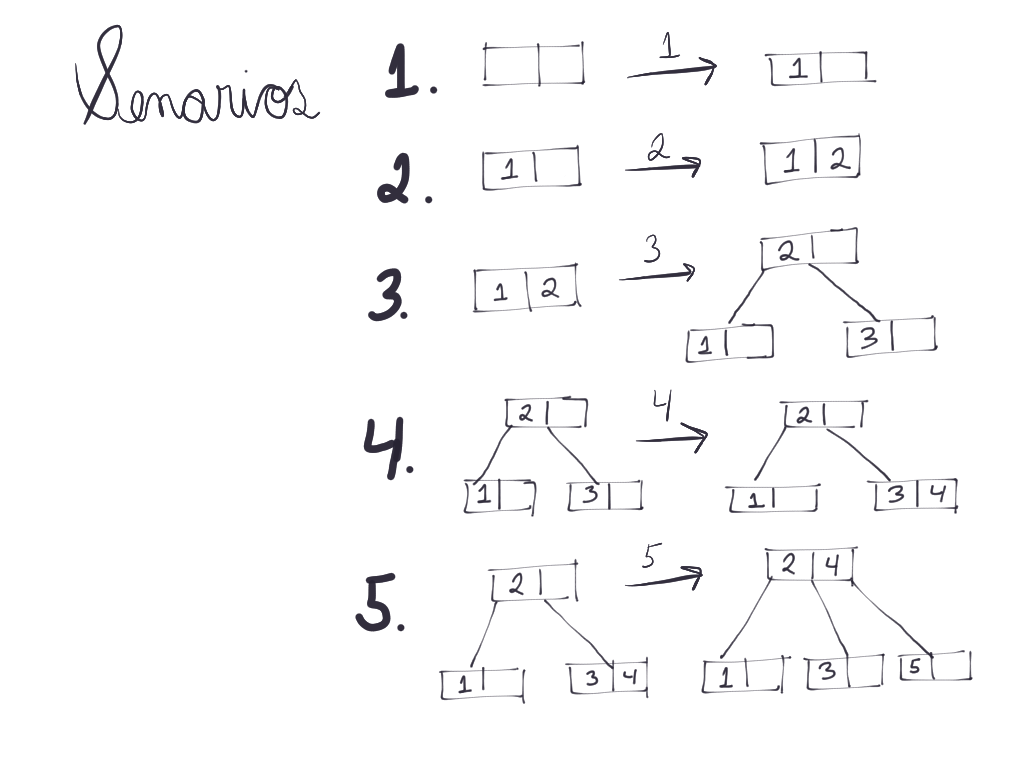 Senarios
1. 1 1
2. 1 2 1 2
3. 1 2 3 2
1 3
4. 2 4 2
1 3 1 3 4
5. 2 5 2 4
1 3 4 1 3 5